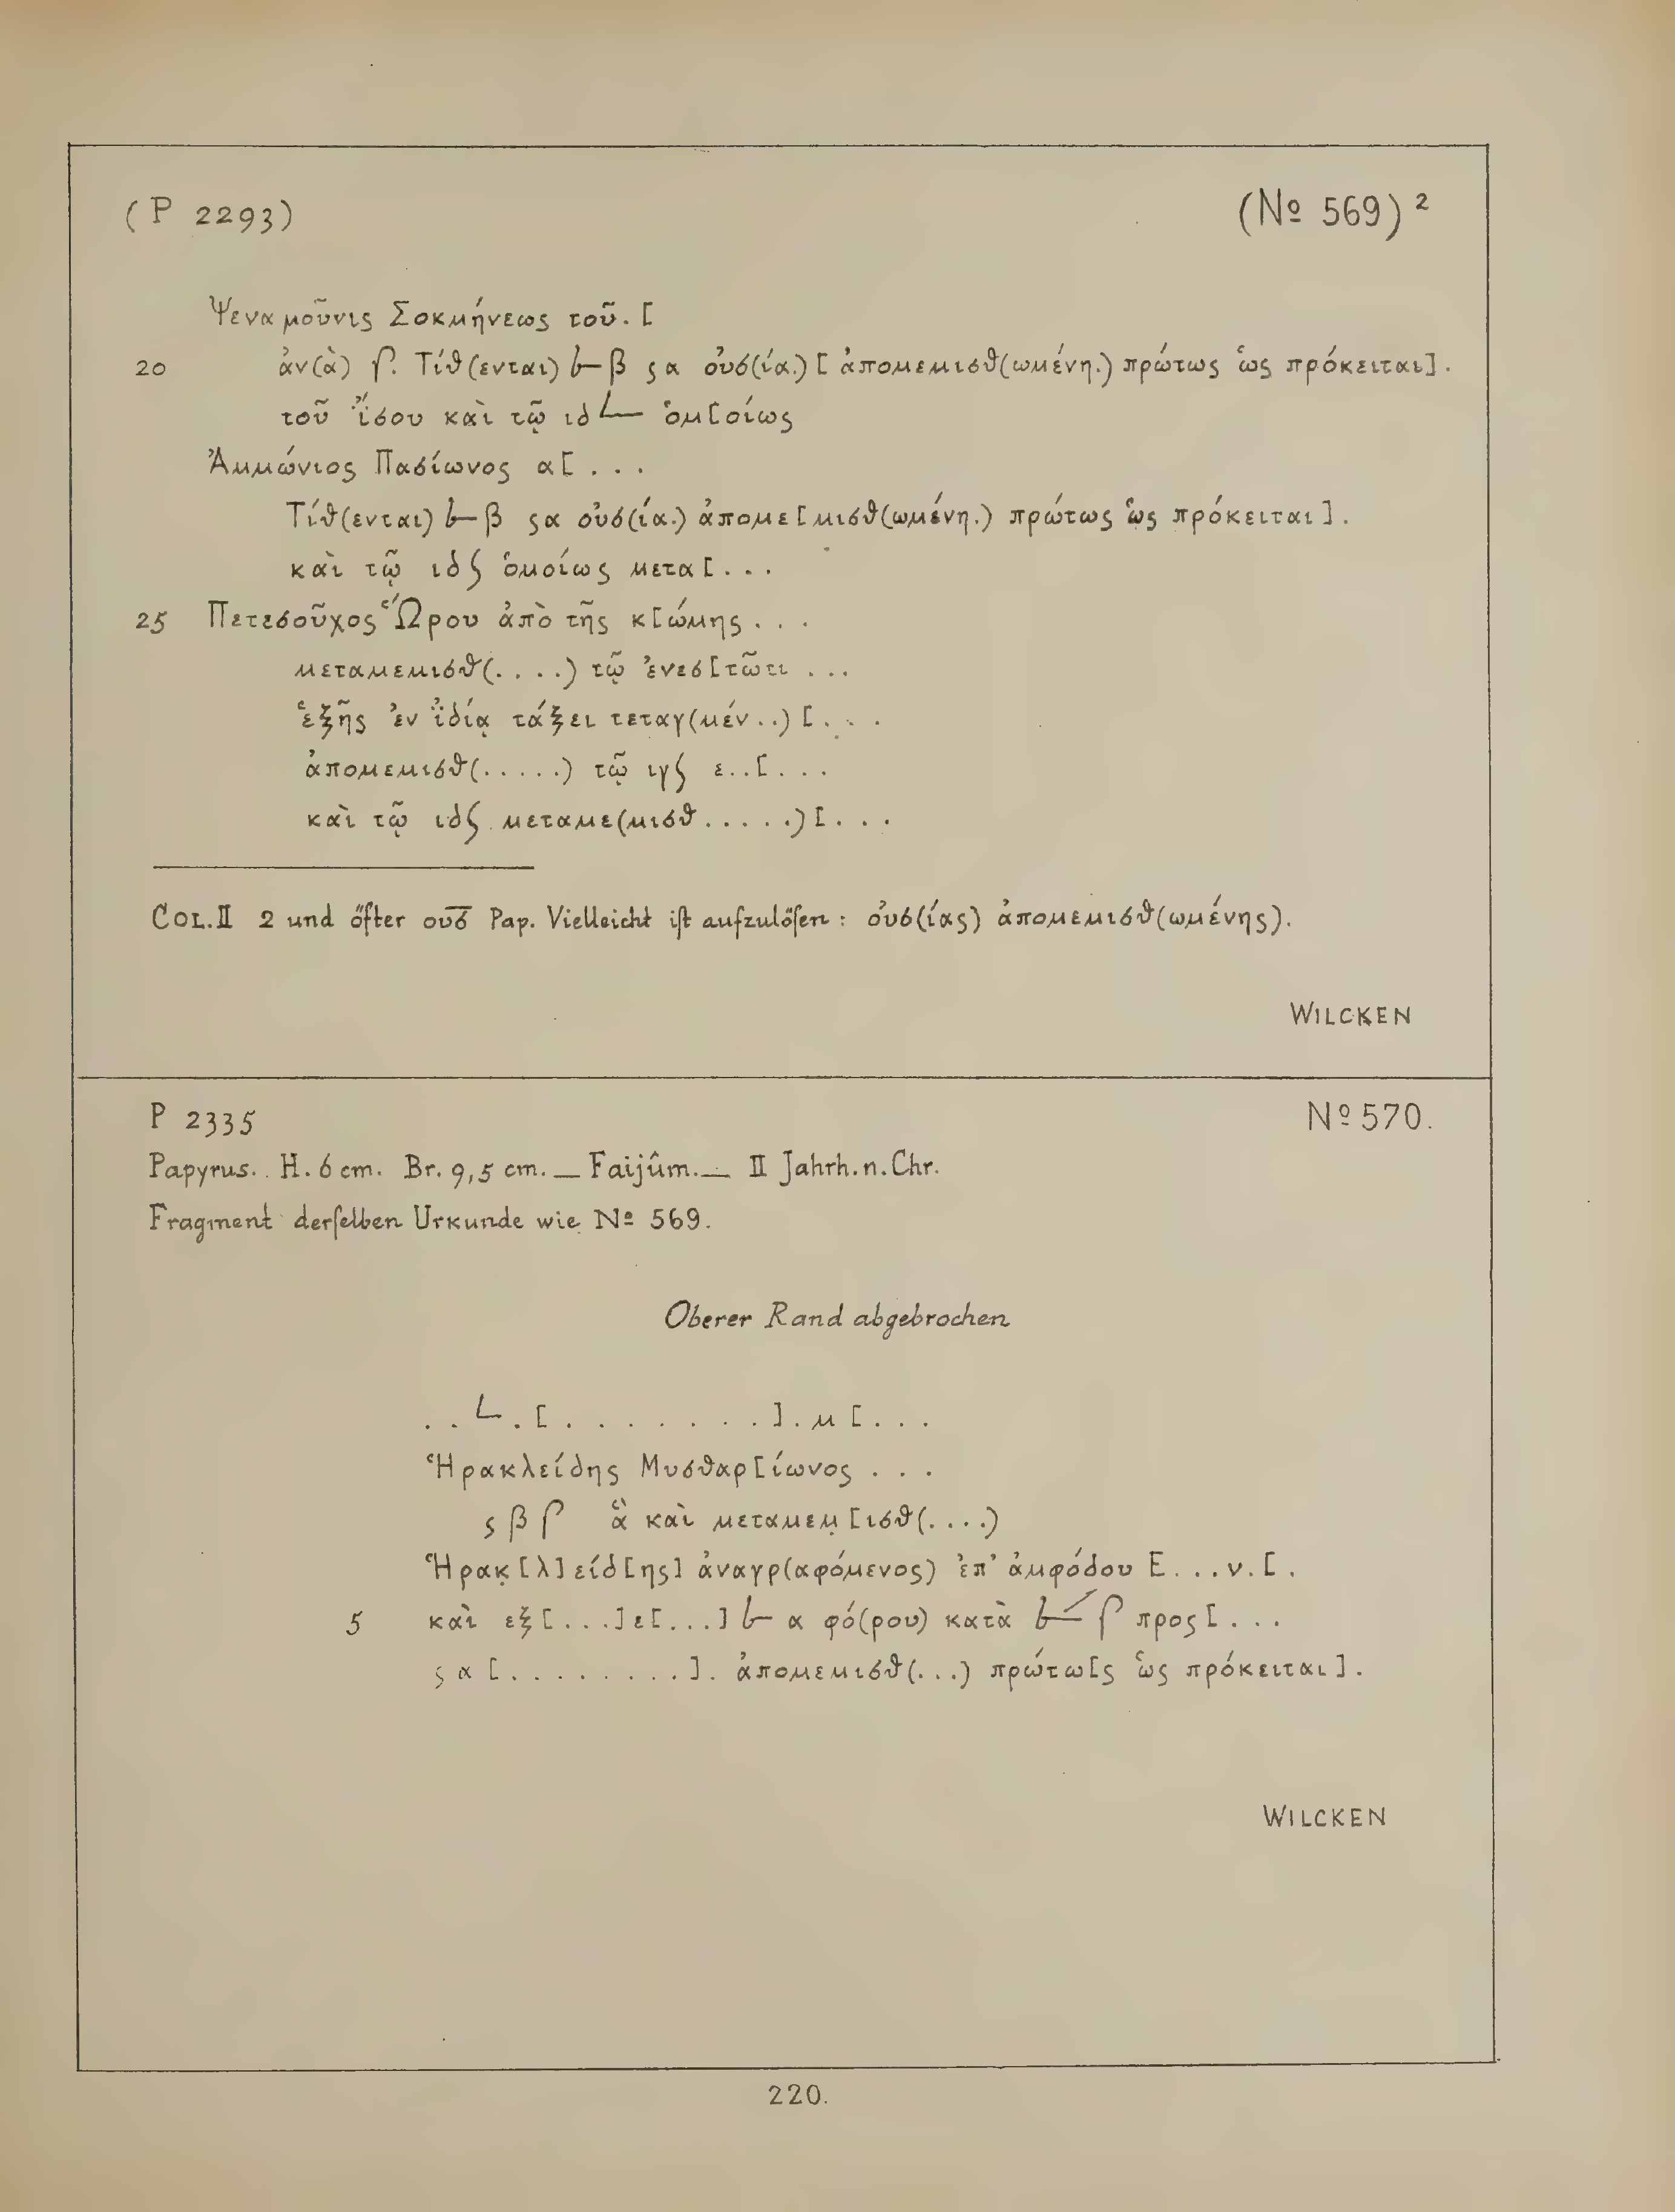 (P 2293) (№ 569)²
Ψεναμοῦνις Σοκμήνεως τοῦ . [
20 ἀν(ὰ) 𐅵. Τίθ(ενται) 𐅹 β ϛ α οὐσ(ία.) [ἀπομεμισθ(ωμένη.) πρώτως ὡς πρόκειται].
τοῦ ἴ̈σου καὶ τῷ ιδ 𐅹 ὁμ[οίως
Ἀμμώνιος Πασίωνος α[ . . .
Τίθ(ενται) 𐅹 β ϛ α οὐσ(ία.) ἀπομε[μισθ(ωμένη.) πρώτως ὡς πρόκειται].
καὶ τῷ ιδ ϛ ὁμοίως μετα[ . . .
25 Πετεσοῦχος Ὥρου ἀπὸ τῆς κ[ώμης . . .
μεταμεμισθ(. . . .) τῷ ἐνεσ[τῶτι . . .
ἑξῆς ἐν ἰ̈δίᾳ τάξει τεταγ(μέν . .) [ . . .
ἀπομεμισθ(. . . . .) τῷ ιγ ϛ ε . . [ . . .
καὶ τῷ ιδ ϛ μεταμε(μισθ . . . . .) [ . . .
COL. II 2 und öfter ουσ̅ Pap. Vielleicht iſt aufzulöſen: οὐσ(ίας) ἀπομεμισθ(ωμένης).
WILCKEN
P 2335 № 570.
Papyrus. H. 6 cm. Br. 9,5 cm. — Faijûm. — II Jahrh. n. Chr.
Fragment derſelben Urkunde wie № 569.
Oberer Rand abgebrochen
. . L . [ . . . . . . . . ] . μ [ . . .
Ἡρακλείδης Μυσθαρ[ίωνος . . .
ϛ β 𐅵 ἃ καὶ μεταμεμ̣[ισθ(. . . .)
Ἡρακ̣[λ]είδ[ης] ἀναγρ(αφόμενος) ἐπ' ἀμφόδου Ε . . . ν . [ .
5 καὶ εξ[ . . . ]ε[ . . . ] 𐅹 α φό(ρου) κατὰ 𐅹 𐅵 προς[ . . .
ϛ α [ . . . . . . . . ] . ἀπομεμισθ(. . .) πρώτω[ς ὡς πρόκειται].
WILCKEN
220.